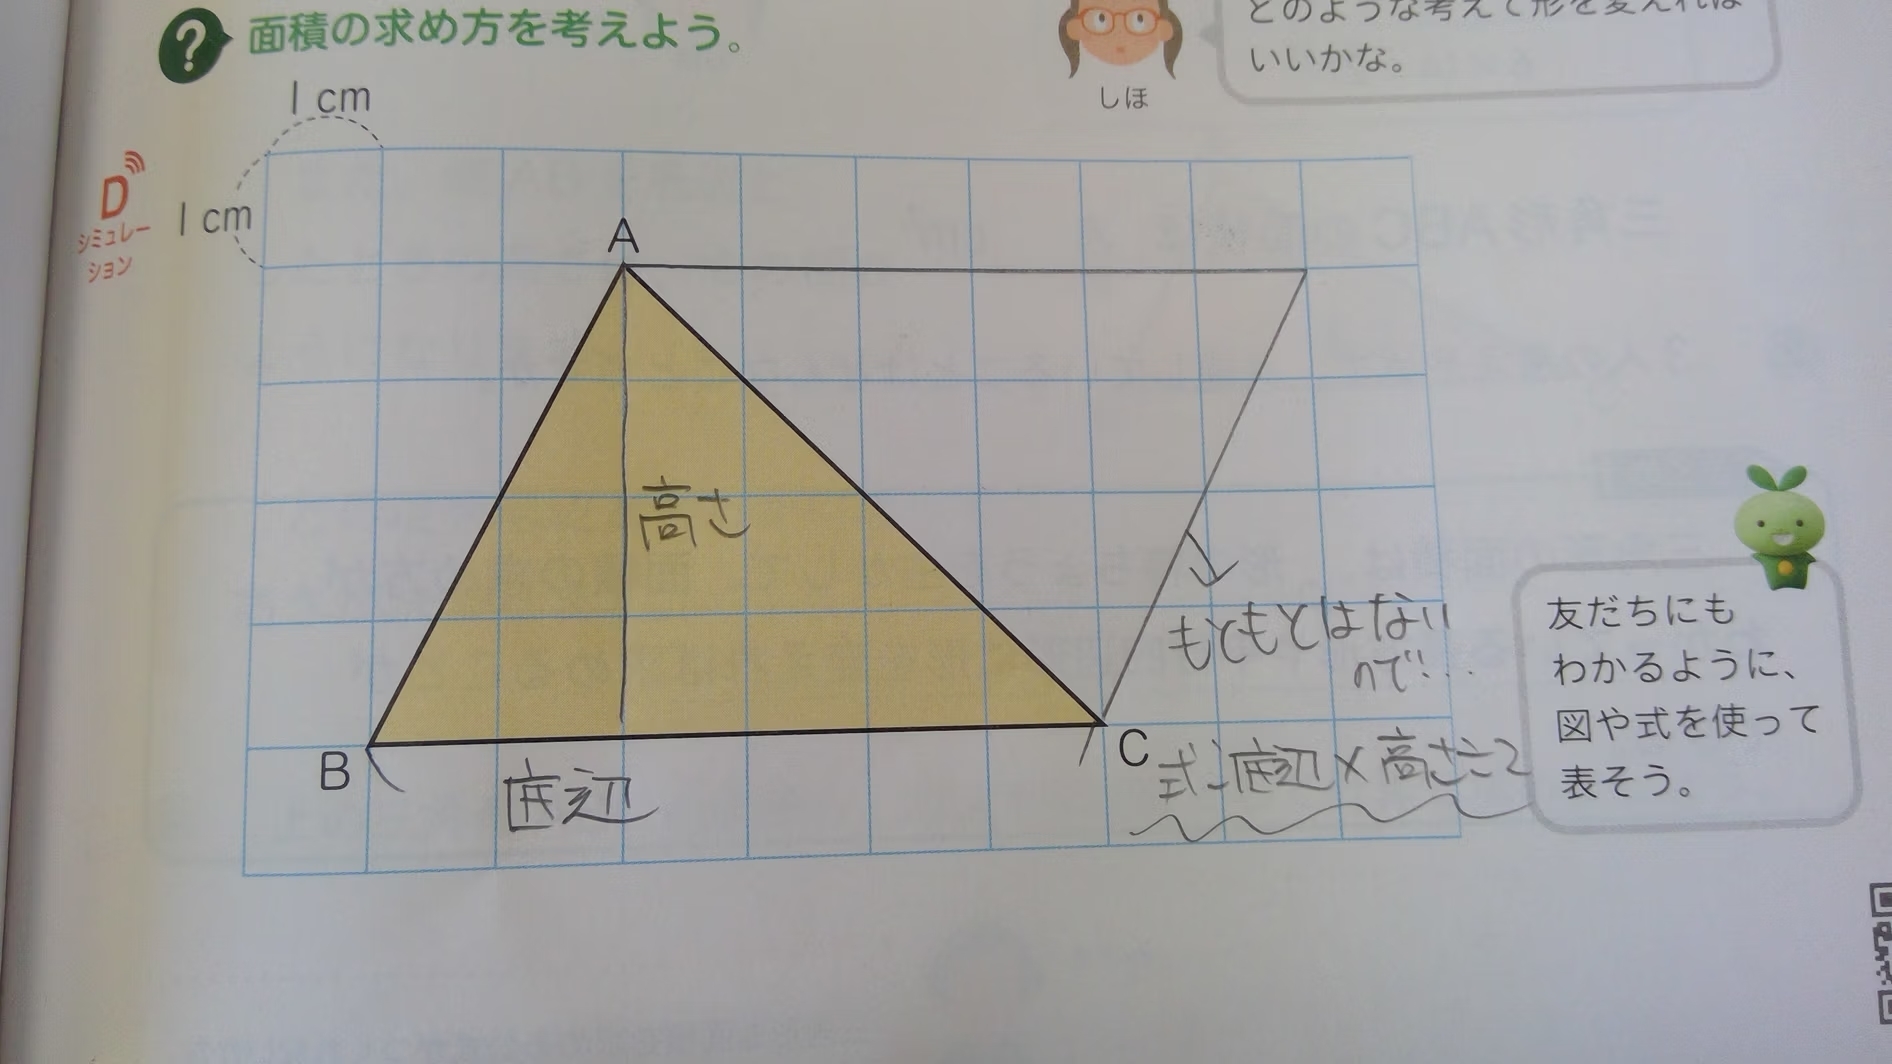 面積の求め方を考えよう。
どのような考えで形を変えれば
いいかな。
しほ
1 cm
D
シミュレー
ション
1 cm
A
高さ
もともとはない
ので!..
B
底辺
C
式:底辺×高さ÷2
友だちにも
わかるように、
図や式を使って
表そう。